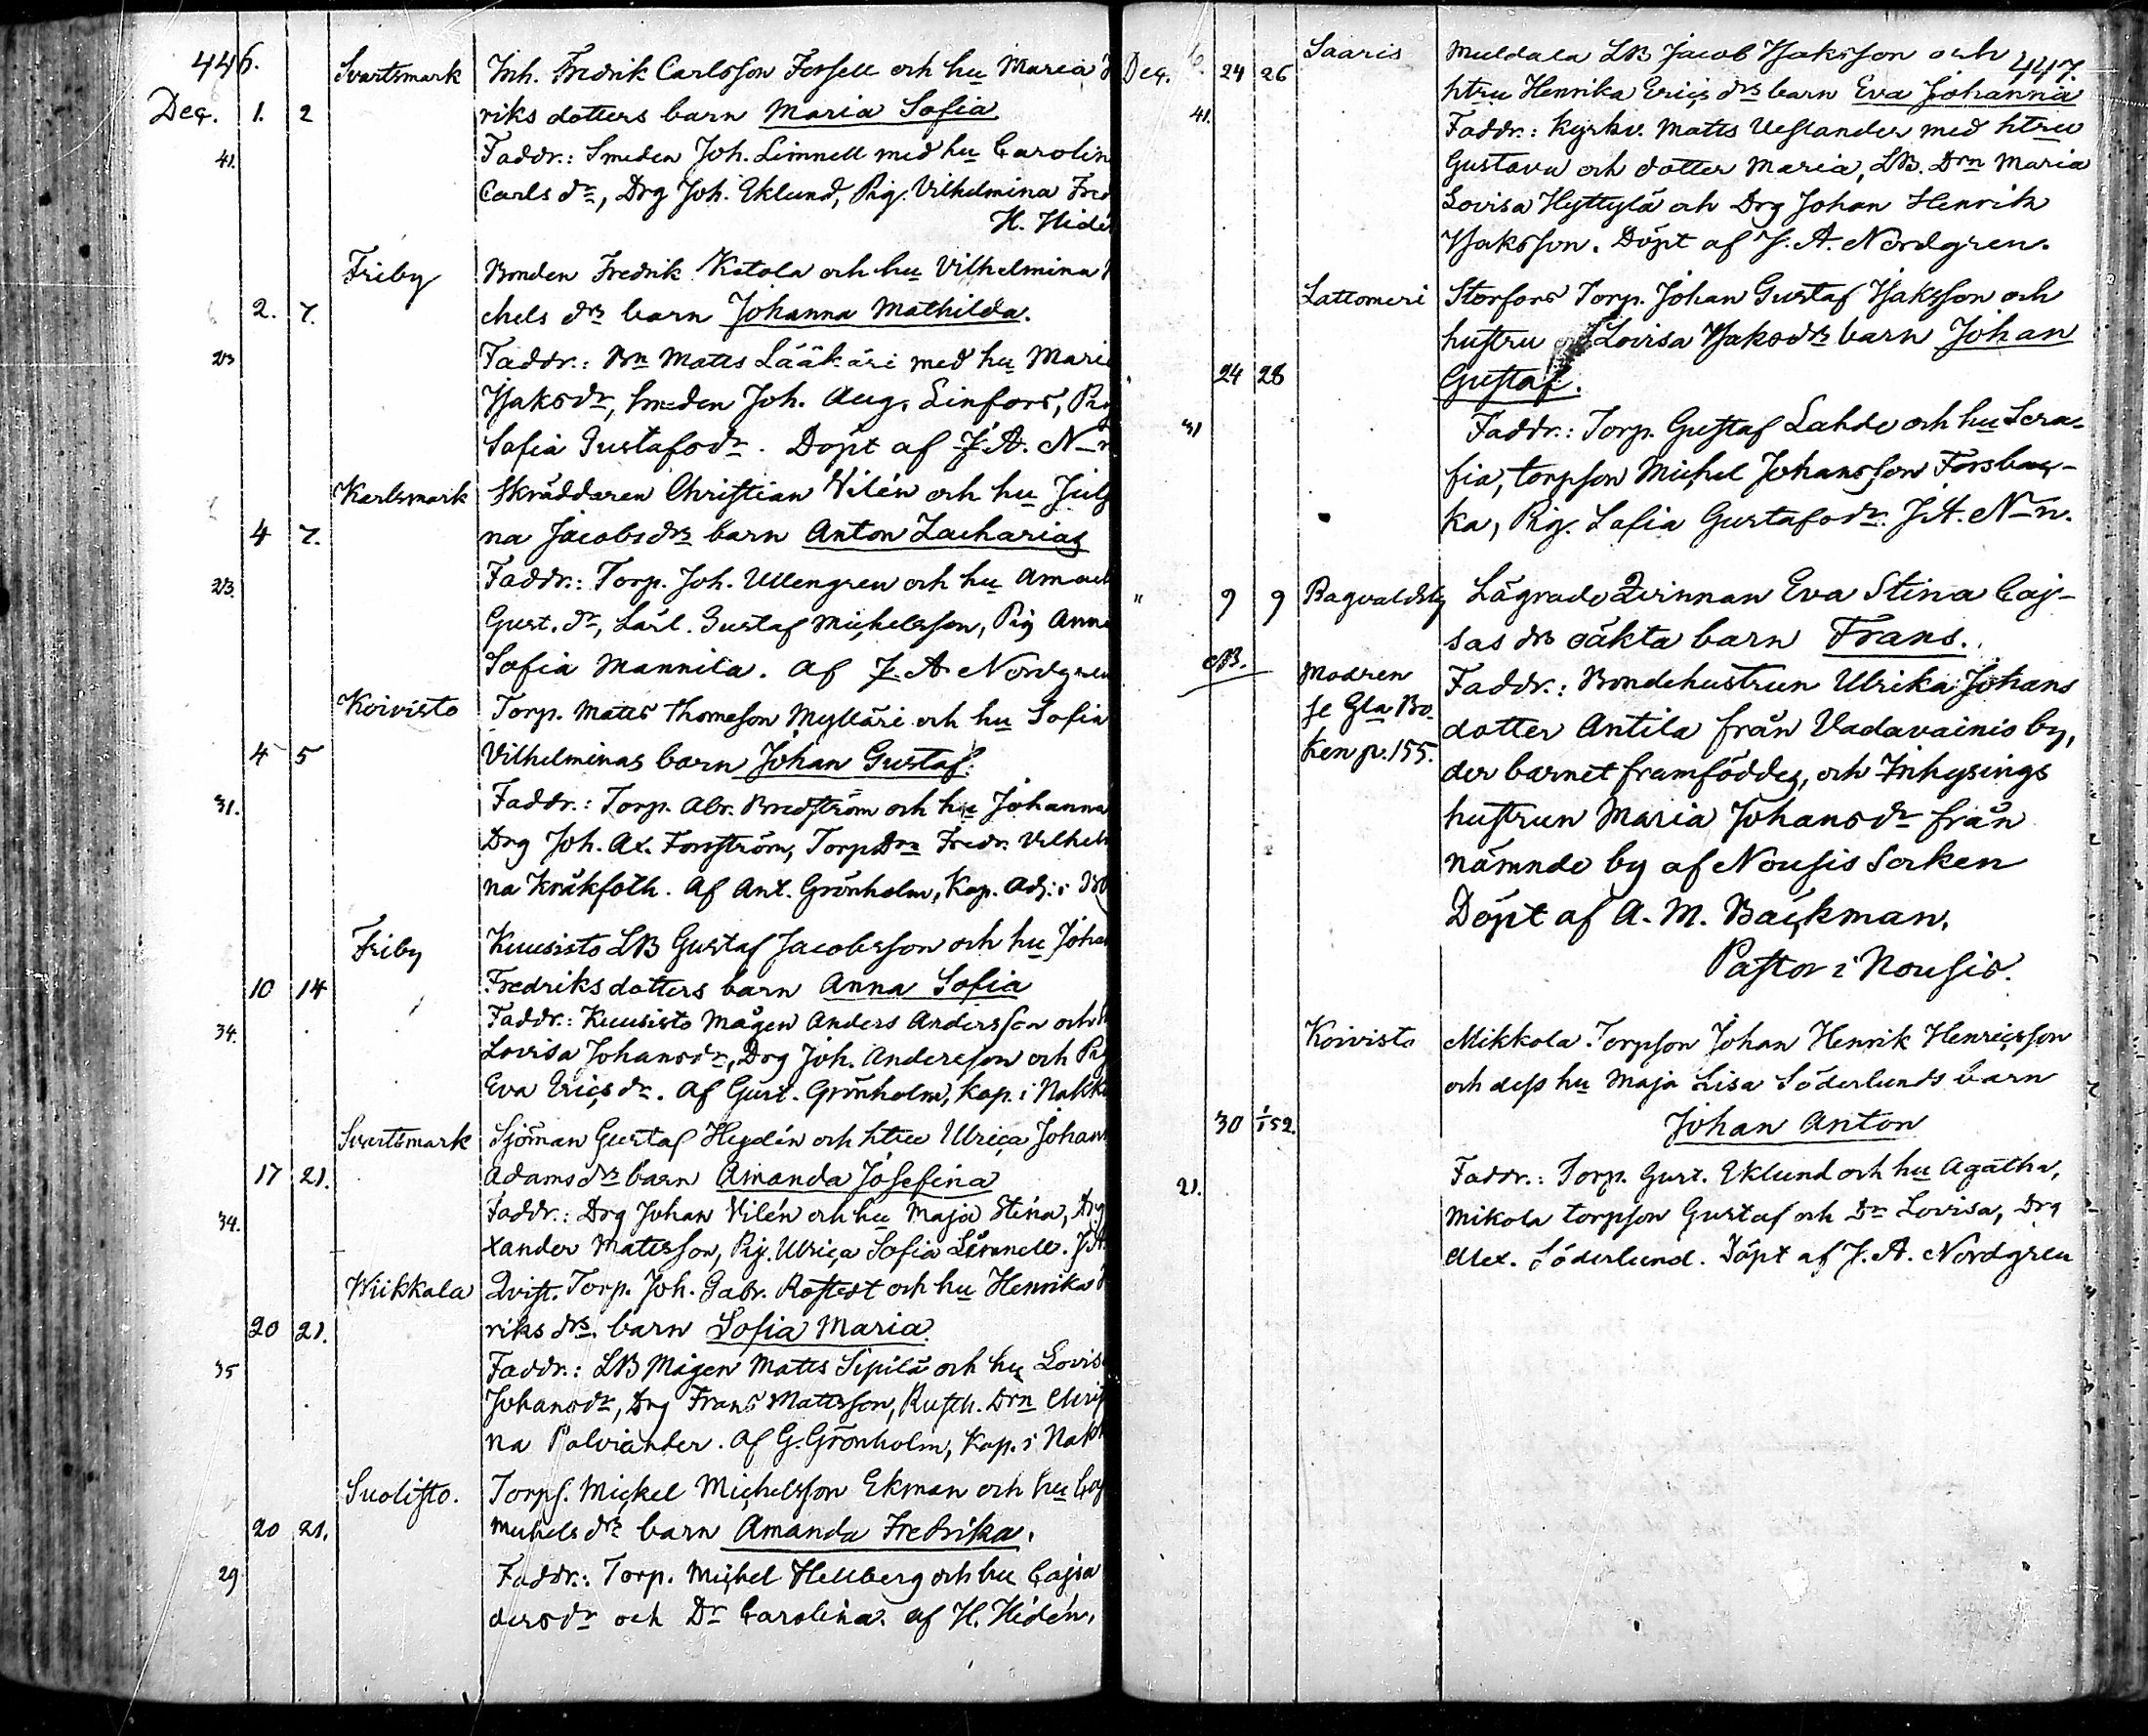 446.
Svartsmark Inh. Fredrik Carlsson Forsell och hu Maria
Dec. 1. 2 riks dotters barn Maria Sofia
41. Faddr.: Smeden Joh. Limnell med hu Carolin
Carls dr, Drg Joh. Eklund, Pig. Vilhelmina Fred
H. Hidé
Friby Bonden Fredrik Ketola och hu Vilhelmina
2. 7. chels drs barn Johanna Mathilda.
23 Faddr.: Bn Matts Lääkäri med hu Mari
Isaksdr, Smeden Joh. Aug. Linfors, Pig
Sofia Gustafsdr. Döpt af J. A. N–n
Karlsmark Skräddaren Christian Vilén och hu July
4 7. na Jacobsdrs barn Anton Zacharias
23. Faddr.: Torp. Joh. Ullengren och hu Ama
Gust. dr, Lärl. Gustaf Michelsson, Pig Anna
Sofia Mannila. af J. A. Nordgren
Koivisto Torp. Matts Thomsson Mylläri och hu Sofia
4 5 Vilhelminas barn Johan Gustaf.
31. Faddr.: Torp. Abr. Bredström och hu Johanna
Drg Joh. Ax. Forsström, Torp Drn Fredr. Vilhel
na Kräkfoth. Af Ant. Grönholm, Kap. Adj. i
Friby Kuusisto LB Gustaf Jacobsson och hu Joha
10 14 Fredriksdotters barn Anna Sofia
34. Faddr.: Kuusisto Mågen Anders Andersson och
Lovisa Johansdr, Drg Joh. Andersson och Pig
Eva Ericsdr. Af Gust. Grönholm, Kap. i Nakk
Svartsmark Sjöman Gustaf Heydén och htru Ulrica Johan
17 21. Adamsdrs barn Amanda Josefina
34. Faddr.: Drg Johan Vilén och hu Maja Stina, Drg
xander Mattsson, Pig. Ulrica Sofia Limnell. J. A.
Wiikkala Qvist. Torp. Joh. Gabr. Rostedt och hu Henrika
20 21. riks drs. barn Sofia Maria.
35 Faddr.: LB Mågen Matts Sipilä och hu Lovis
Johansdr, Drg Frans Mattsson, Rusth. Drn Chris
na Palviander. Af G. Grönholm, Kap. i Nak
Suolisto. Torps. Mickel Michelsson Ekman och hu Caj
20 21. michels drs barn Amanda Fredrika.
29 Faddr.: Torp. Michel Hellberg och hu Cajsa
dersdr och Dr Carolina. af H. Hidén.
447.
Dec. 24 26 Saaris Muldala LB Jacob Isaksson och
htru Henrika Erics drs barn Eva Johanna
41. Faddr.: Kyrkv. Matts Veslander med htru
Gustava och dotter Maria, LB. Drn Maria
Lovisa Hyttylä och Drg Johan Henrik
Isaksson. Döpt af J. A. Nordgren.
Lattomeri Storfors Torp. Johan Gustaf Isaksson och
hustru Lovisa Isaksdrs barn Johan
" 24 28 Gustaf.
31 Faddr.: Torp. Gustaf Lahde och hu Sera-
fia, torpson Michel Johansson Forsbac-
ka, Pig. Sofia Gustafsdr. J. A. N–n.
" 9 9 Ragvaldsby Lägrade Qvinnan Eva Stina Caj-
sas drs oäkta barn Frans.
NB. Modren Faddr.: Bondehustrun Ulrika Johans
se Gla Bo- dotter Antila från Vadavainis by,
ken p. 155. der barnet framföddes, och Inhysings
hustrun Maria Johansdr från
nämnde by af Nousis Socken
Döpt af A. M. Backman,
Pastor i Nousis.
Koivisto Mikkola Torpson Johan Henrik Henricsson
och dess hu Maja Lisa Söderlunds barn
30 1/1 52. Johan Anton
21. Faddr.: Torp. Gust. Eklund och hu Agatha,
Mikola torpson Gustaf och Dr Lovisa, Drg
Alex. Söderlund. Döpt af J. A. Nordgren